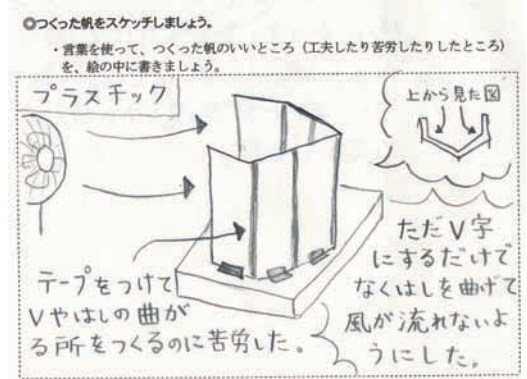 ◎つくった帆をスケッチしましょう。
・言葉を使って、つくった帆のいいところ（工夫したり苦労したりしたところ）
を、絵の中に書きましょう。
プラスチック
上から見た図
テープをつけて
Vやはしの曲が
る所をつくるのに苦労した。
ただV字
にするだけで
なくはしを曲げて
風が流れないよ
うにした。